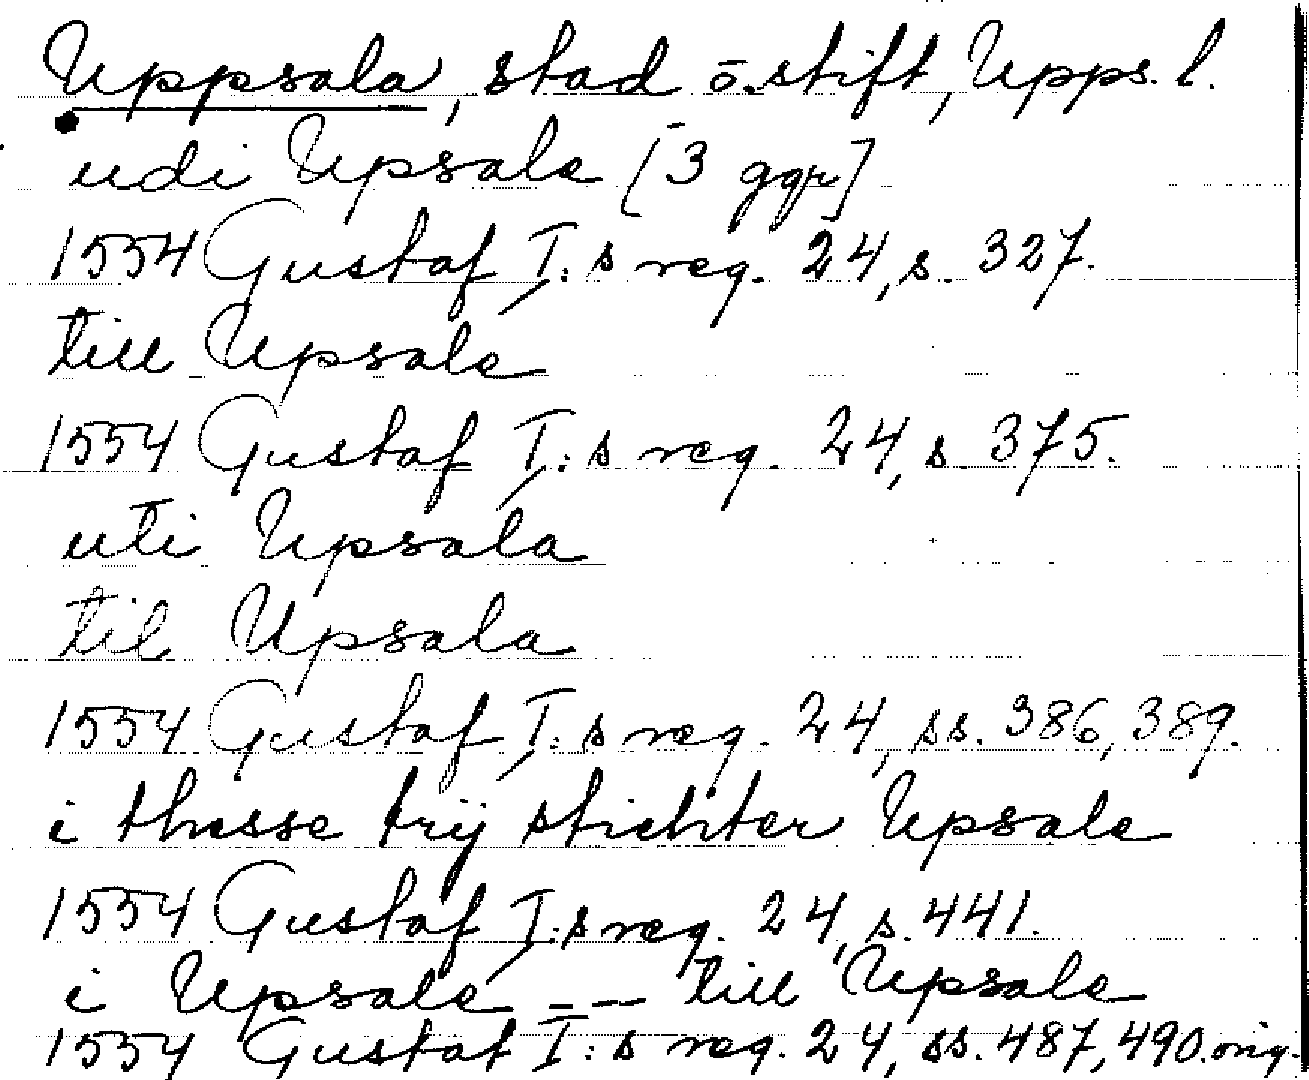 Uppsala, stad o. stift, Upps. l.
udi Upsale [3 ggr]
1554 Gustaf I:s reg. 24, s. 327.
till Upsale
1554 Gustaf I:s reg. 24, s. 375.
uti Upsala
til Upsala
1554 Gustaf I:s reg. 24, ss. 386, 389.
i thesse trij stichter Upsale
1554 Gustaf I:s reg. 24, s. 441.
i Upsale --- till Upsale
1554 Gustaf I:s reg. 24, ss. 487, 490. orig.